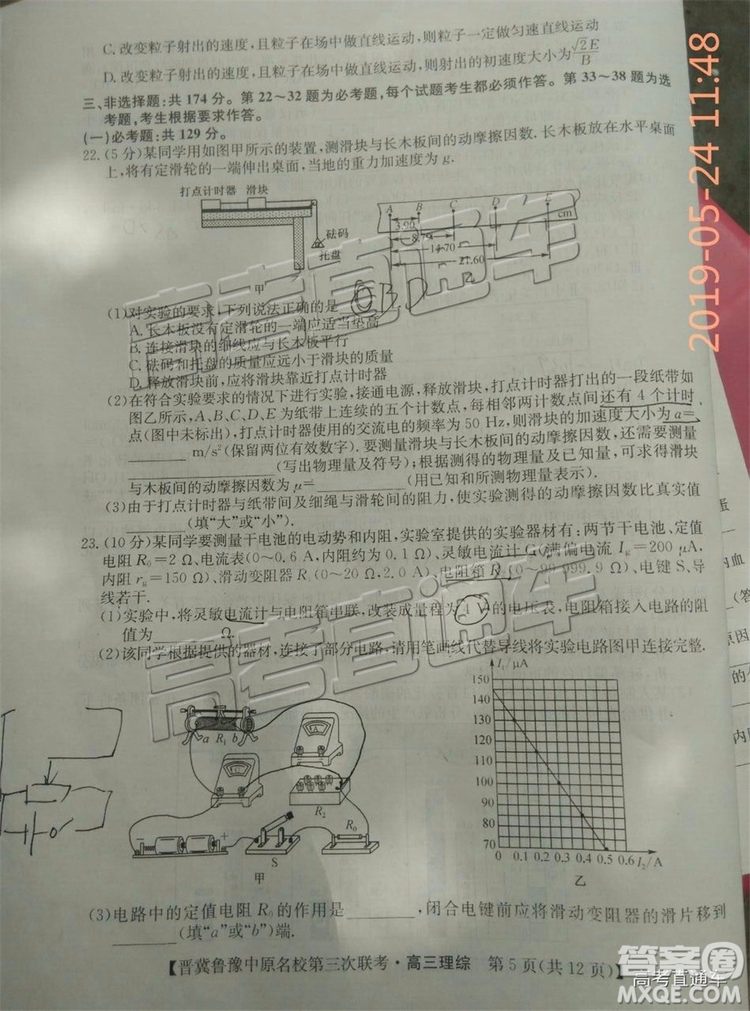 C. 改变粒子射出的速度，且粒子在场中做直线运动，则粒子一定做匀速直线运动
D. 改变粒子射出的速度，且粒子在场中做直线运动，则粒子的初速度大小为√2E/B
三、非选择题：共 174 分。第 22～32 题为必考题，每个试题考生都必须作答。第 33～38 题为选
考题，考生根据要求作答。
(一)必考题：共 129 分。
22. (5 分)某同学用如图甲所示的装置，测滑块与长木板间的动摩擦因数. 长木板放在水平桌面
上，将有定滑轮的一端伸出桌面，当地的重力加速度为 g.
打点计时器 滑块
砝码
托盘
甲
A B C D E
cm
3.90
8.79
14.70
21.60
(1)对实验的要求，下列说法正确的是
BD
A. 长木板没有定滑轮的一端应适当垫高
B. 连接滑块的细线应与长木板平行
C. 砝码和托盘的质量应远小于滑块的质量
D. 释放滑块前，应将滑块靠近打点计时器
(2)在符合实验要求的情况下进行实验，接通电源，释放滑块，打点计时器打出的一段纸带如
图乙所示，A、B、C、D、E 为纸带上连续的五个计数点，每相邻两计数点间还有 4 个计时
点(图中未标出)，打点计时器所接的交流电的频率为 50 Hz，则滑块的加速度大小为 a=
______ m/s²(保留两位有效数字). 要测量滑块与长木板间的动摩擦因数，还需要测量
______(写出物理量及符号)；根据测得的物理量及已知量，可求得滑块
与木板间的动摩擦因数为 μ=______(用已知和所测物理量表示).
(3)由于打点计时器与纸带间及细绳与滑轮间的阻力，使实验测得的动摩擦因数比真实值
______(填“大”或“小”).
23. (10 分)某同学要测量干电池的电动势和内阻，实验室提供的实验器材有：两节干电池、定值
电阻 R₀=2 Ω、电流表(0～0.6 A，内阻约为 0.1 Ω)、灵敏电流计 G(满偏电流 Ig=200 μA，
内阻 rg=150 Ω)、滑动变阻器(0～20 Ω，2.0 A)、电阻箱 R(0～99 999.9 Ω)、电键 S、导
线若干.
(1)实验中，将灵敏电流计与电阻箱串联，改装成量程为 4 V 的电压表，电阻箱接入电路的阻
值为______Ω.
(2)该同学根据提供的器材，连接了部分电路，请用笔画线代替导线将实验电路图甲连接完整.
a R₁ b
R₂
R₀
S
－ ＋
甲
I₁/μA
150
140
130
120
110
100
90
80
70
0 0.1 0.2 0.3 0.4 0.5 0.6 I₂/A
乙
(3)电路中的定值电阻 R₀ 的作用是______，闭合电键前应将滑动变阻器的滑片移到
______(填“a”或“b”)端.
【晋冀鲁豫中原名校第三次联考·高三理综 第 5 页(共 12 页)】
2019-05-24 11:48
高考直通车
高考直通车
答案圈
MXQE.COM
高考直通车